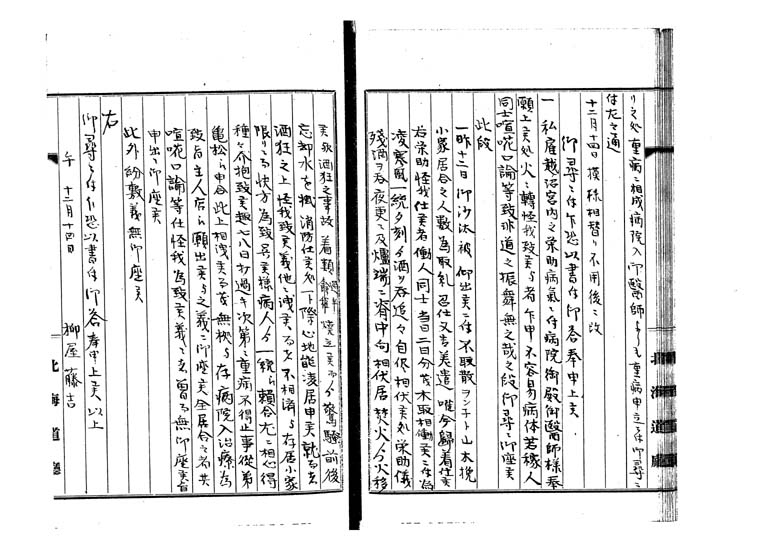 り之処重病ニ相成病院入御醫師
付左之通
十二月十四日模様相替り不用後ニ改
御尋ニ付乍恐以書付御答奉申上候
一私雇越後宮内之栄助病氣ニ付病院御殿御醫師様奉
願上候処火ニ轉怪我致候与者乍申不容易病体若稼人
同士喧嘩口論等致非道之振舞無之哉之段御尋ニ御座候
此段
一昨十二日御沙汰被仰出候ニ付不取敢ヲンチト山木挽
小家居合之人数為取糺召仕又吉差遣唯今歸着仕候
右栄助怪我仕候者働人同士当日二日分笈木取相働候ニ付為
凌寒風一統夕刻ゟ酒ヲ呑追々自侭相伏候処栄助儀
残酒ヲ呑夜更ニ及爐端ニ脊中向相伏居焚火ゟ火移
候
忘却水を掛消防仕候処一ト際心地能凌居申候就而者
酒狂之上怪我致候義他ニ洩候而者不相済与存居小家
限りニ而快方為致呉候様病人ゟ一統江賴合尤ニ相心得
種々介抱致候趣七八日打過キ次第ニ重病不得止事從弟
亀松江申合此上相洩候而茂無据与存病院入治療為
致旨主人店江願出候与之義ニ御座候全居合之者共
喧嘩口論等仕怪我為致候義ニ者曽而無御座候旨
申出ニ御座候
此外紛敷義無御座候
右
御尋ニ付乍恐以書付御答奉申上候以上
午十二月十四日
柳屋藤吉
北海道廳
北海道廳